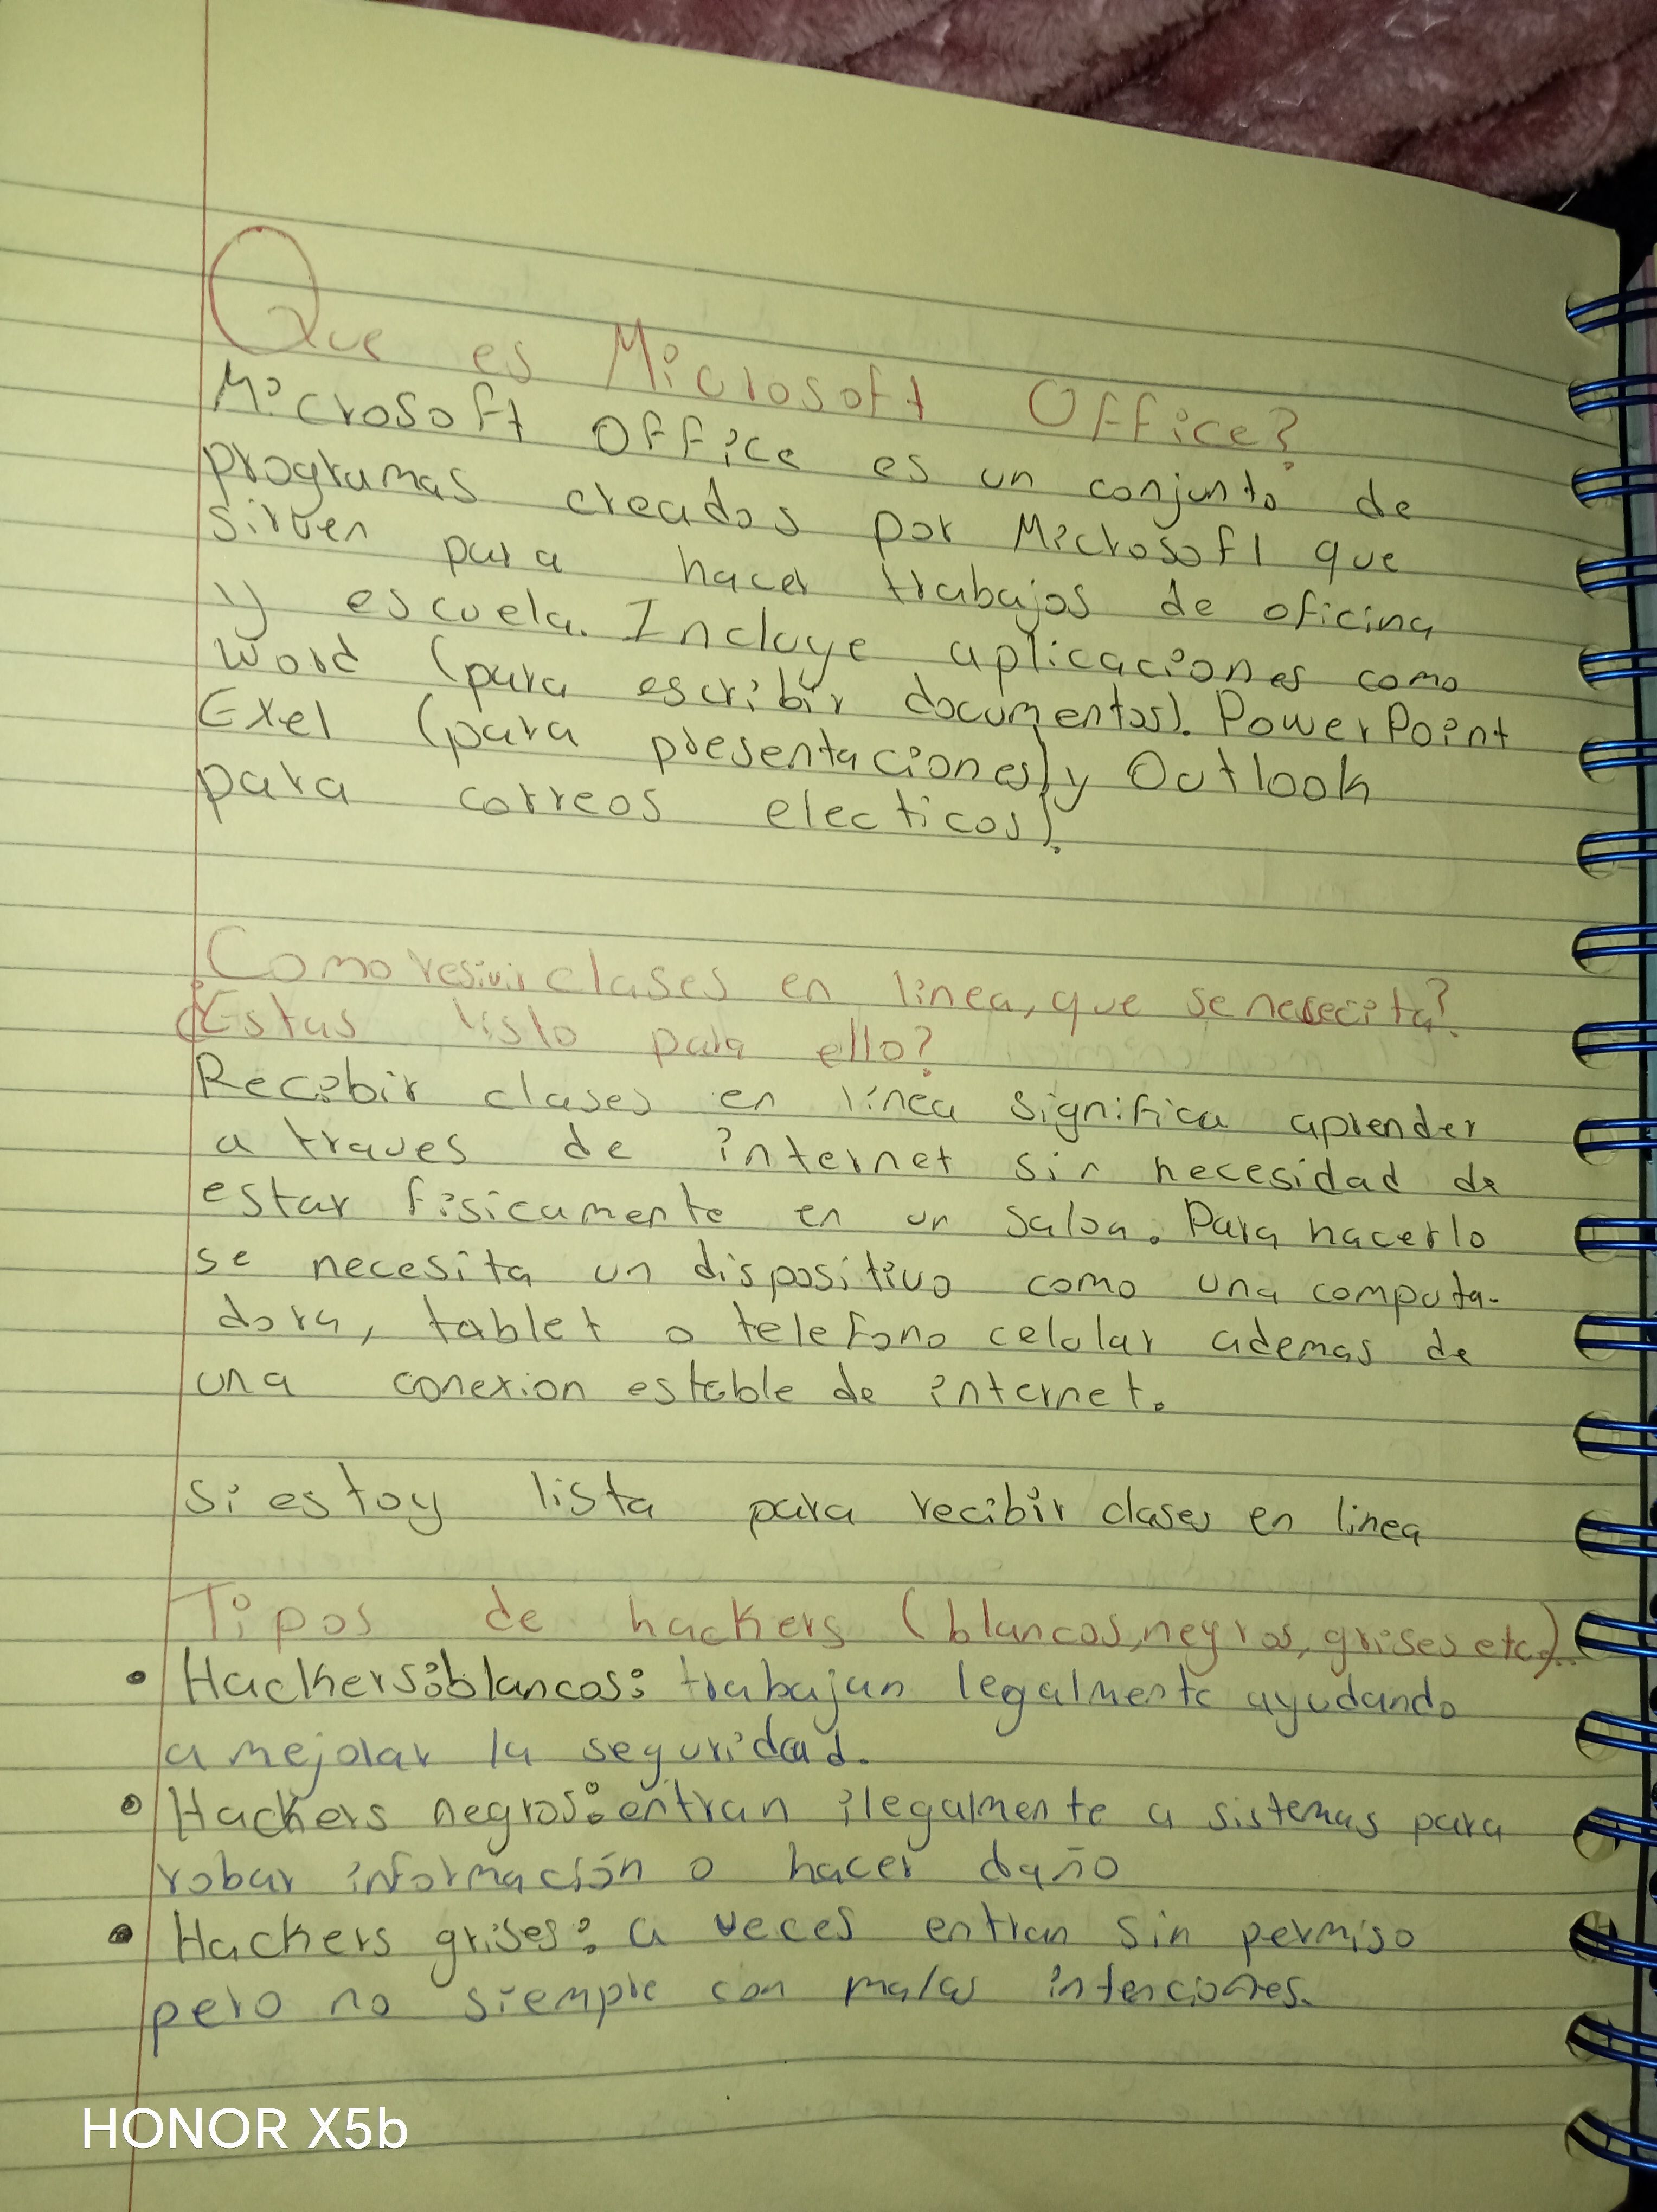 Que es Microsoft Office?
Microsoft Office es un conjunto de
programas creados por Microsoft que
sirven para hacer trabajos de oficina
y escuela. Incluye aplicaciones como
Word (para escribir documentos). PowerPoint
Exel (para presentaciones) y Outlook
para correos electicos).
Como resivir clases en linea, que se nececita?
¿Estas listo para ello?
Recibir clases en línea significa aprender
a traves de internet sin necesidad de
estar fisicamente en un salon. Para hacerlo
se necesita un dispositivo como una computa-
dora, tablet o telefono celular ademas de
una conexion estable de internet.
si estoy lista para recibir clases en linea
Tipos de hackers (blancos, negros, grises etc.).
• Hackers:blancos: trabajan legalmente ayudando
a mejorar la seguridad.
• Hackers negros: entran ilegalmente a sistemas para
robar información o hacer daño
• Hackers grises: a veces entran sin permiso
pero no siempre con malas intenciones.
HONOR X5b